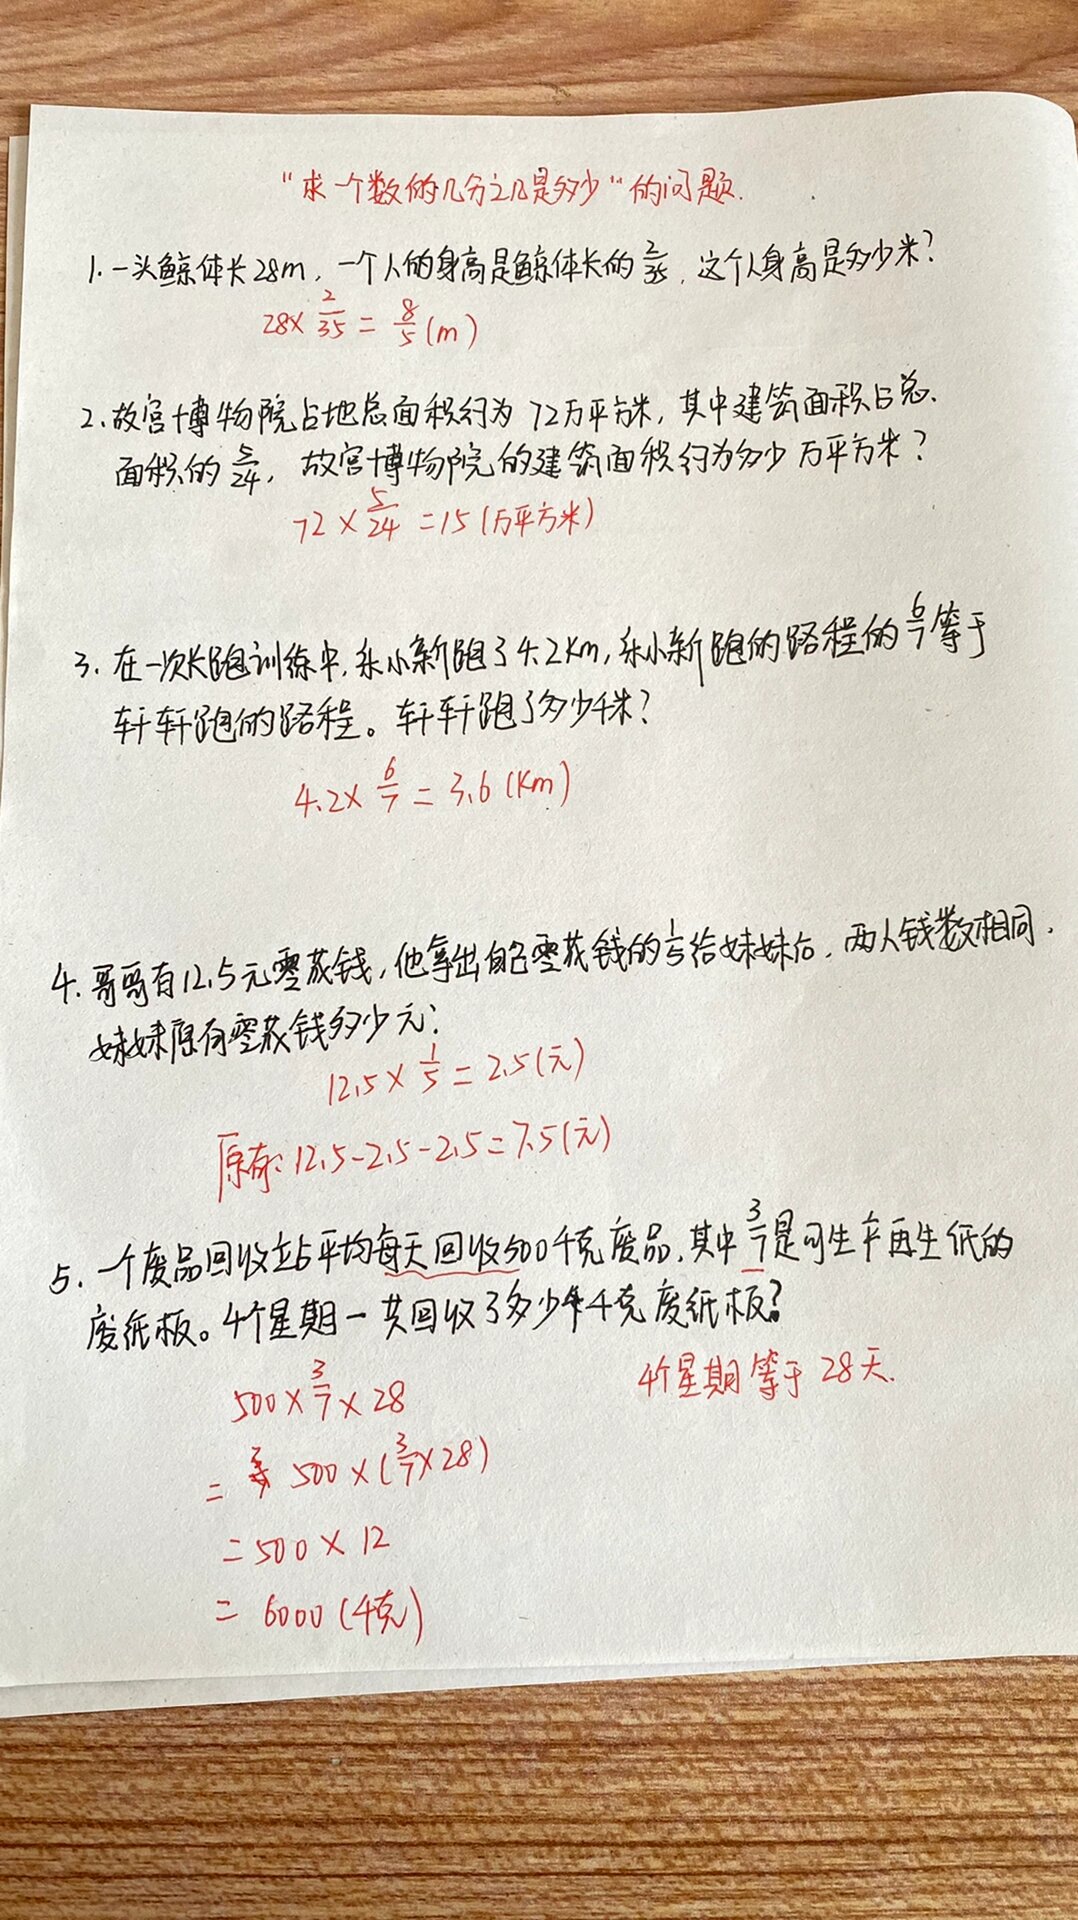 “求一个数的几分之几是多少”的问题.
1.一头鲸体长28m,一个人的身高是鲸体长的2/35,这个人身高是多少米?
28×2/35=8/5(m)
2.故宫博物院占地总面积约为72万平方米,其中建筑面积占总
面积的5/24,故宫博物院的建筑面积约为多少万平方米?
72×5/24=15(万平方米)
3.在一次长跑训练中,乐小新跑了4.2Km,乐小新跑的路程的6/7等于
轩轩跑的路程。轩轩跑了多少千米?
4.2×6/7=3.6(Km)
4.哥哥有12.5元零花钱,他拿出自己零花钱的1/5给妹妹后,两人钱数相同.
妹妹原有零花钱多少元?
12.5×1/5=2.5(元)
原有:12.5-2.5-2.5=7.5(元)
5.一个废品回收站平均每天回收500千克废品,其中3/7是可生产再生纸的
废纸板。4个星期一共回收了多少千克废纸板?
4个星期等于28天.
500×3/7×28
=500×(3/7×28)
=500×12
=6000(千克)